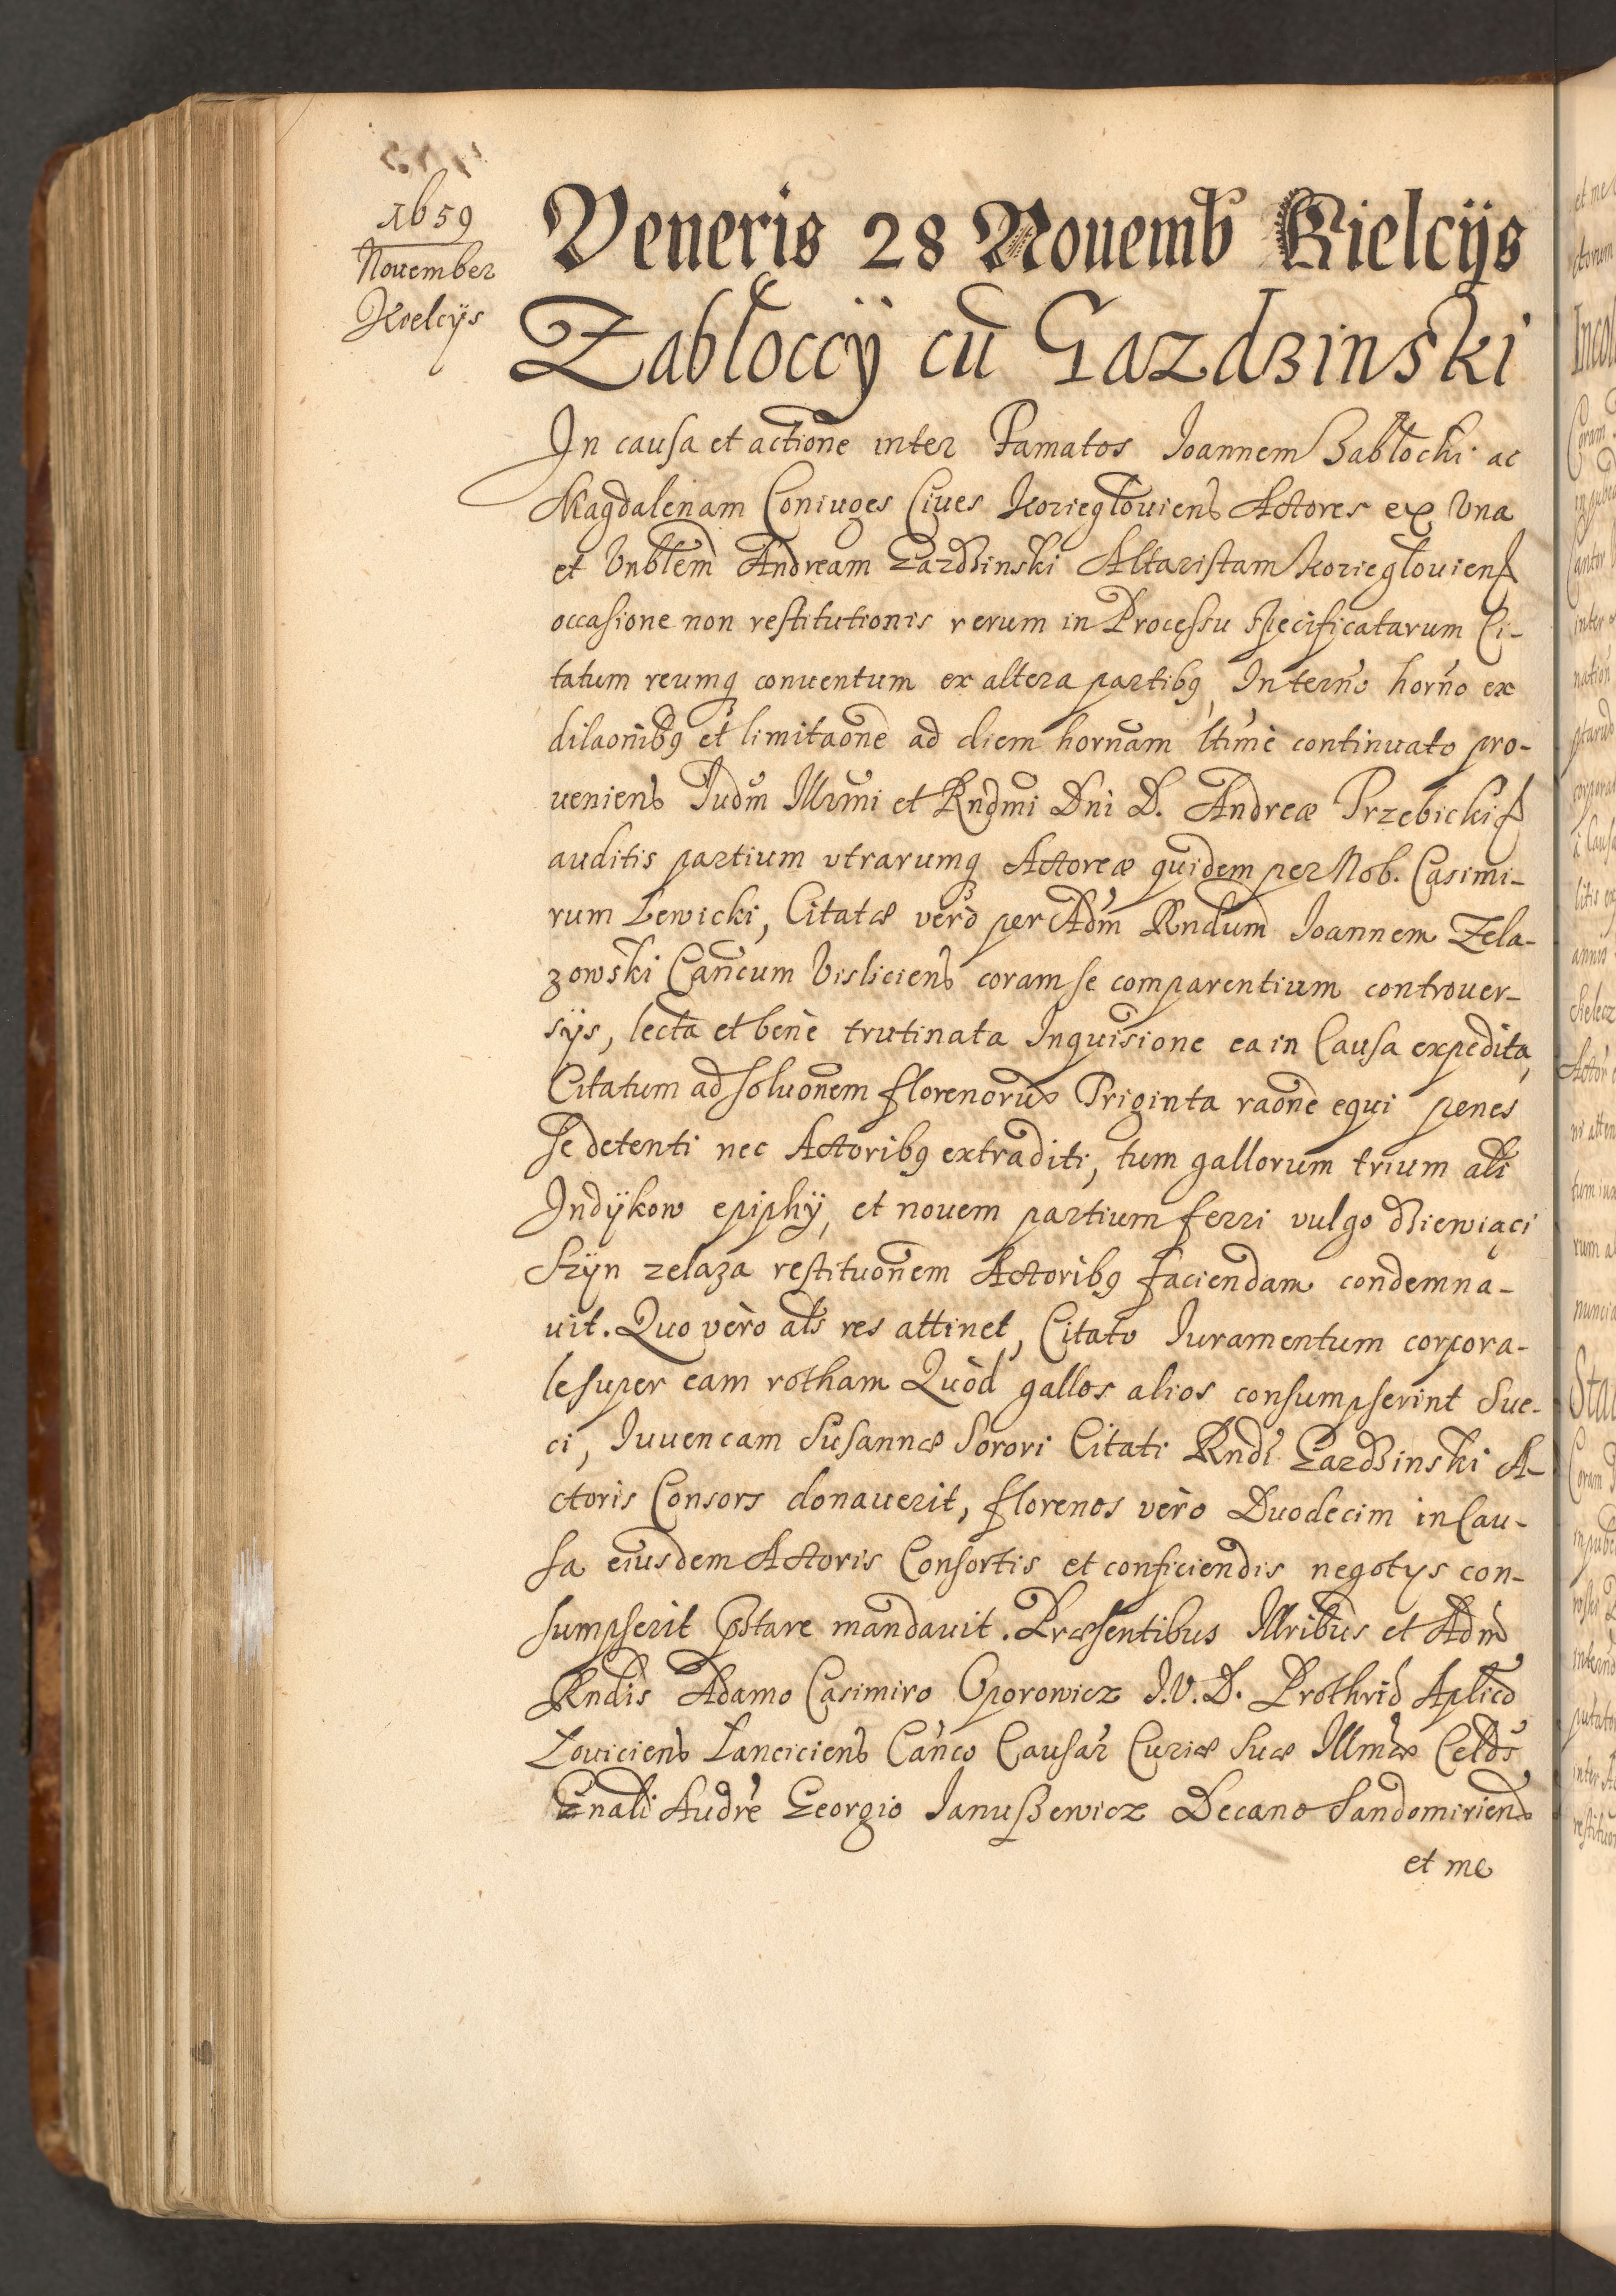 1659
November
Kielcijs
Veneris 28 Nouemb Kielcijs
Zabłoccÿ cū Gazdzinski
In causa et actione inter Famatos Joannem Zabłocki ac
Magdalenam Coniuges Ciues Koziegłouiens Actores ex Vna
et Vnblem Andream Gazdzinski Altaristam Koziegłouiens
occasione non restitutionis rerum in Processu specificatarum Ci-
tatum reumq conuentum ex altera partibq, In terno horno ex
dilaonibq et limitaone ad diem hornam ltimè continuato pro-
ueniens Judm Illrmi et Rndmi Dni D. Andreæ Trzebicki
auditis partium vtrarumq Actoreæ quidem per Nob. Casimi-
rum Lewicki, Citatæ verò per Adm Rndum Joannem Zela-
zowski Cancum Visliciens coram se comparentium controuer-
sijs, lecta et benè trutinata Inquisione ea in Causa expedita,
Citatum ad soluonem florenorum Triginta raone equi penes
se detenti nec Actoribq extraditi, tum gallorum trium als
Indÿkow epiphÿ, et nouem partium ferri vulgo dziewiąci
szÿn zelaza restituonem Actoribq faciendam condemna-
uit. Quo verò als res attinet, Citato Juramentum corpora-
le super eam rotham Quòd gallos alios consumpserint Sue-
ci, Juuencam Susannæ Sorori Citati Rndi Gazdzinski A-
ctoris Consors donauerit, florenos verò Duodecim in Cau-
sa eiusdem Actoris Consortis et conficiendis negotys con-
sumpserit pstare mandauit. Præsentibus Illribus et Adm
Rndis Adamo Casimiro Oporowicz J.V.D. Prothrio Aplico
Louiciens Lanciciens Canco Causar Curiæ Suæ Illmæ Celds
Gnali Audre Georgio Januszewicz Decano Sandomiriens
et me